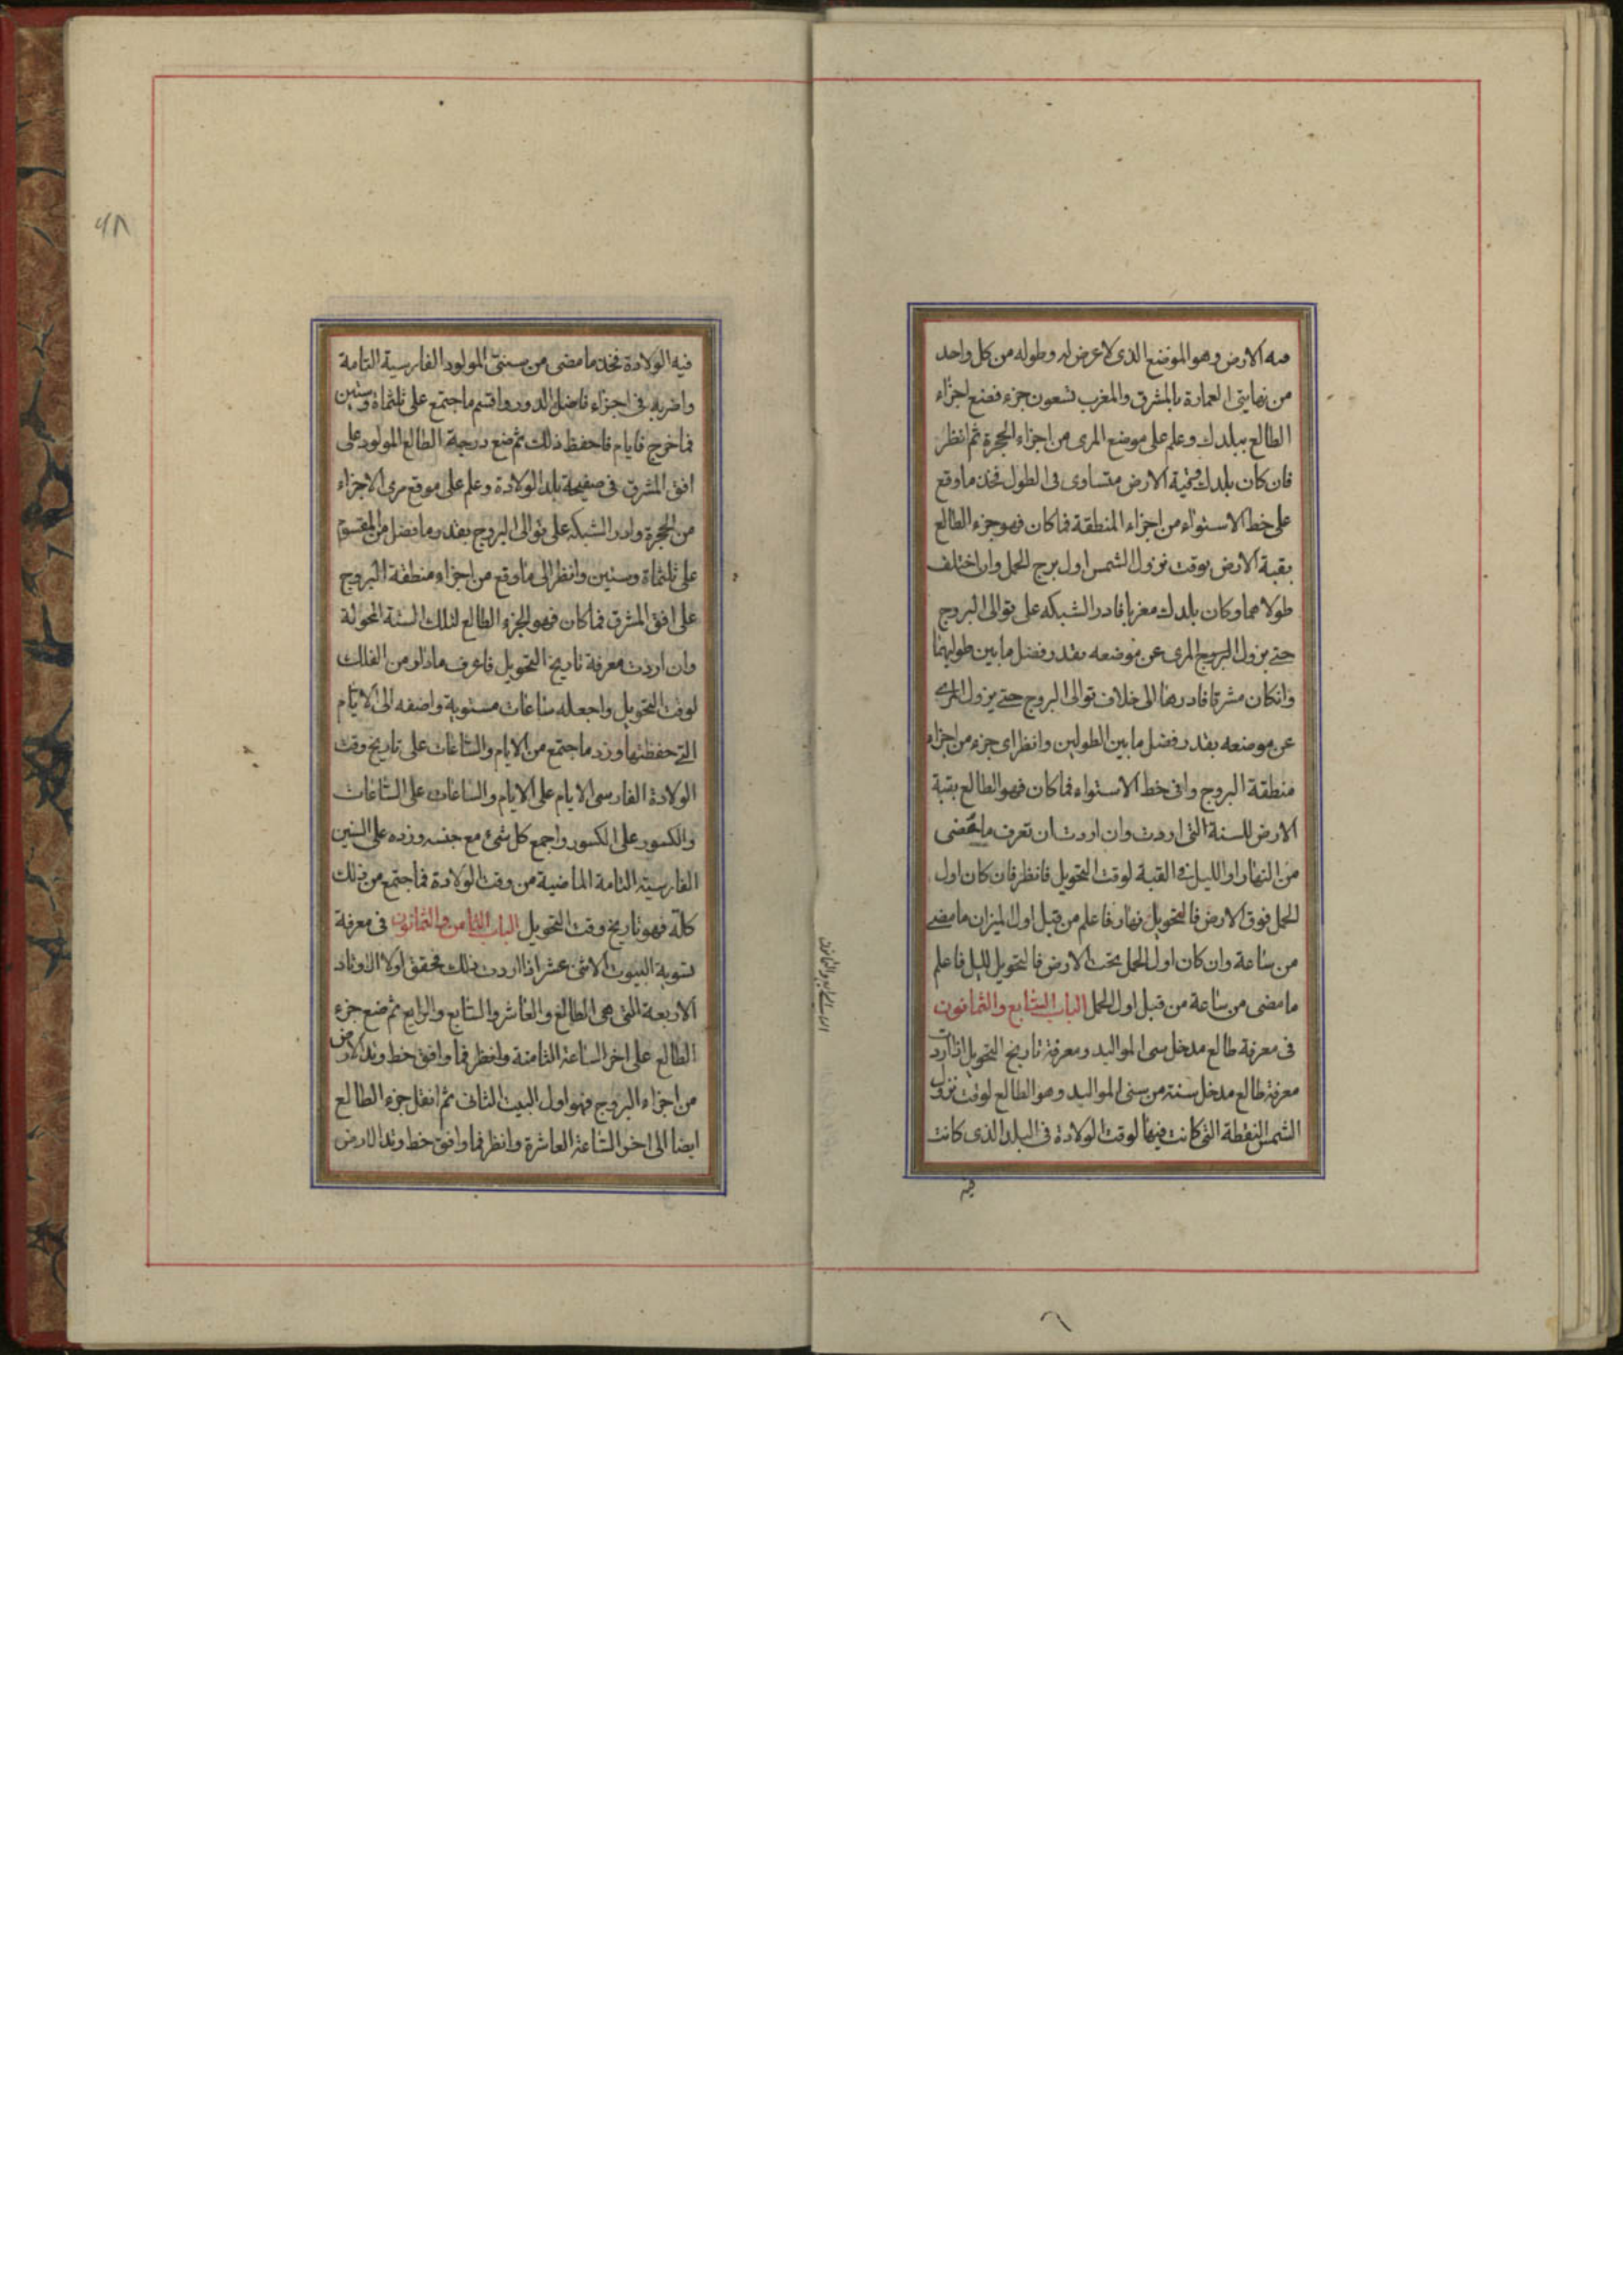 قبه الارض وهو الموضع الذى لا عرض له وطوله من كل واحد
من نهايتى العمارة بالمشرق والمغرب تسعون جزء فضع اجزاء
الطالع ببلدك وعلم على موضع المرى من اجزاء الحجرة ثم انظر
فان كان بلدك وقبة الارض متساوى فى الطول فخذ ما وقع
على خط الاستواء من اجزاء المنطقة فما كان فهو جزء الطالع
بقبة الارض بوقت نزول الشمس اول برج الحمل وان اختلف
طولاهما وكان بلدك مغربا فادر الشبكه على توالى البروج
حتى يزول المرى عن موضعه بقدر فضل ما بين طوليهما
وانكان مشرقا فادرها الى خلاف توالى البروج حتى يزول المرى
عن موضعه بقدر فضل ما بين الطولين وانظر اى جزء من اجزاء
منطقة البروج وافى خط الاستواء فما كان فهو الطالع بقبة
الارض للسنة التى اردت وان اردت ان تعرف ما مضى
من النهار او الليل فى القبة لوقت التحويل فانظر فان كان اول
الحمل فوق الارض فالتحويل نهار فاعلم من قبل اول الميزان ما مضى
من ساعة وان كان اول الحمل تحت الارض فالتحويل لليل فاعلم
ما مضى من ساعة من قبل اول الحمل الباب السابع والثمانون
فى معرفة طالع مدخل سى المواليد ومعرفة تاريخ التحويل اذا اردت
معرفة طالع مدخل سنة من سنى المواليد وهو الطالع لوقت نزول
الشمس النقطة التى كانت فيها لوقت الولادة فى البلد الذى كانت
فيه
فيه الولادة فخذ ما مضى من سنى المولود الفارسية التامة
واضربه فى اجزاء فاضل الدور واقسم ما اجتمع على ثلثماة وستين
فما خرج فايام فاحفظ ذلك ثم ضع درجة الطالع المولود على
افق المشرق فى صفيحة بلد الولادة وعلم على موقع مرى الاجزاء
من الحجرة وادر الشبكه على توالى البروج بقدر ما فضل من المقسوم
على ثلثماة وستين وانظر الى ما وقع من اجزاء منطقة البروج
على افق المشرق فما كان فهو الجزء الطالع لتلك السنة المحولة
وان اردت معرفة تاريخ التحويل فاعرف ما دار من الفلك
لوقت التحويل واجعله ساعات مستوية واضفه الى الايام
التى حفظتها وزد ما اجتمع من الايام والساعات على تاريخ وقت
الولادة الفارسى الايام على الايام والساعات على الساعات
والكسور على الكسور واجمع كل شئ مع جنسه وزده على السنين
الفارسية التامة الماضية من وقت الولادة فما اجتمع من ذلك
كله فهو تاريخ وقت التحويل الباب الثامن والثمانون فى معرفة
تسوية البيوت الاثنى عشر اذا اردت ذلك فحقق اولا الاوتاد
الاربعة التى هى الطالع والعاشر والسابع والرابع ثم ضع جزء
الطالع على اخر الساعة الثامنة وانظر فما وافق خط وتد الارض
من اجزاء البروج فهو اول البيت الثانى ثم انقل جزء الطالع
ايضا الى اخر الساعة العاشرة وانظر فما وافق خط وتد الارض